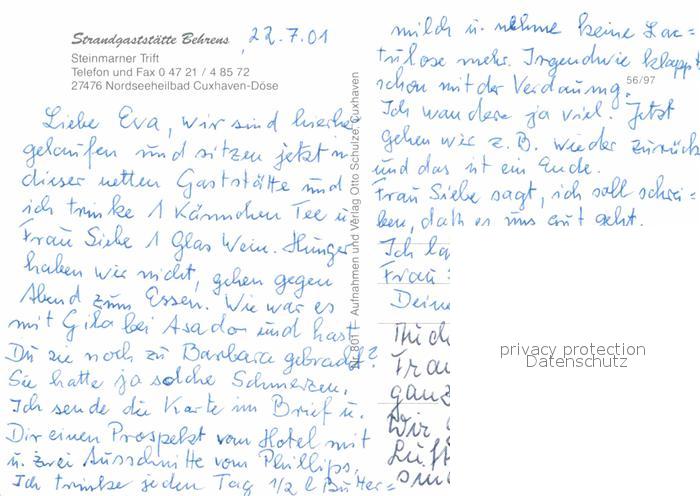 Strandgaststätte Behrens, 22.7.01
Steinmarner Trift
Telefon und Fax 0 47 21 / 4 85 72
27476 Nordseeheilbad Cuxhaven-Döse
Liebe Eva, wir sind hierher
gelaufen und sitzen jetzt in
dieser netten Gaststätte und
ich trinke 1 Kännchen Tee u.
Frau Siebe 1 Glas Wein. Hunger
haben wir nicht, gehen gegen
Abend zum Essen. Wie war es
mit Gila bei Asador und hast
Du sie noch zu Barbara gebracht?
Sie hatte ja solche Schmerzen.
Ich sende die Karte im Brief u.
Dir einen Prospekt vom Hotel mit
u. zwei Ausschnitte vom Phillips.
Ich trinke jeden Tag 1/2 l Butter=
Nr. 801 Aufnahmen und Verlag Otto Schulze, Cuxhaven
milch u. nehme keine Lac=
tulose mehr. Irgendwie klappt
schon mit der Verdauung.
56/97
Ich wandere ja viel. Jetzt
gehen wir z. B. wieder zurück
und das ist ein Ende.
Frau Siebe sagt, ich soll schrei=
ben, daß es uns gut geht.
Ich
Frau
Deine
Frau
ganz
Wir
Luft
sind
privacy protection
Datenschutz